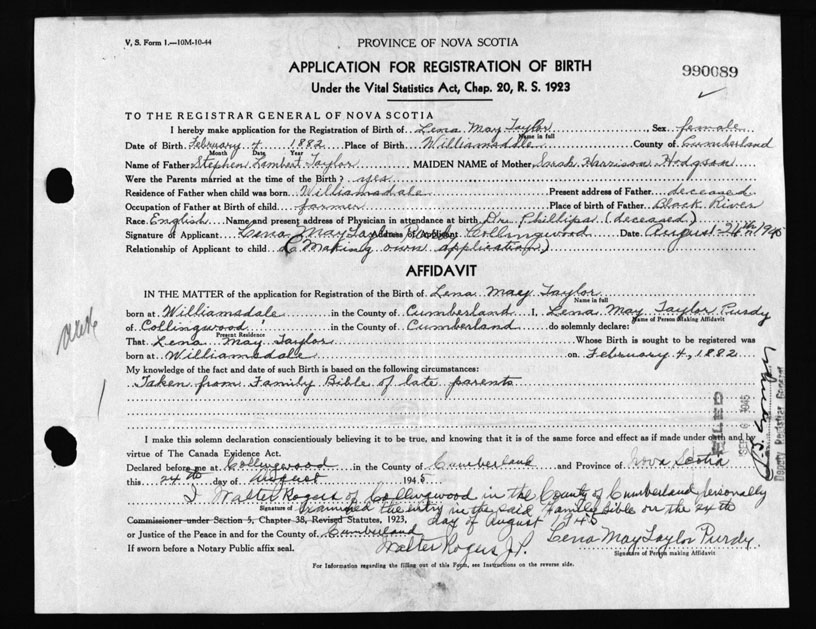 V. S. Form 1.—10M-10-44
PROVINCE OF NOVA SCOTIA
APPLICATION FOR REGISTRATION OF BIRTH
990089
Under the Vital Statistics Act, Chap. 20, R. S. 1923
TO THE REGISTRAR GENERAL OF NOVA SCOTIA
I hereby make application for the Registration of Birth of Lena May Taylor, Sex female
Name in full
Date of Birth February 4 1882 Place of Birth Williamsdale County of Cumberland
Month Date Year
Name of Father Stephen Lambert Taylor MAIDEN NAME of Mother Sarah Harrison Hodgson
Were the Parents married at the time of the Birth? yes
Residence of Father when child was born Williamsdale Present address of Father deceased
Occupation of Father at Birth of child farmer Place of birth of Father Black River
Race English Name and present address of Physician in attendance at birth Dr Phillips (deceased)
Signature of Applicant Lena May Taylor Purdy Address of Applicant Collingwood Date August 24th 1945
Relationship of Applicant to child (Making own application)
AFFIDAVIT
IN THE MATTER of the application for Registration of the Birth of Lena May Taylor
Name in full
born at Williamsdale in the County of Cumberland I, Lena May Taylor Purdy
Name of Person Making Affidavit
of Collingwood in the County of Cumberland do solemnly declare:
Present Residence
That Lena May Taylor Whose Birth is sought to be registered was
born at Williamsdale on February 4, 1882
My knowledge of the fact and date of such Birth is based on the following circumstances:
Taken from Family Bible of late parents
I make this solemn declaration conscientiously believing it to be true, and knowing that it is of the same force and effect as if made under oath and by
virtue of The Canada Evidence Act.
Declared before me at Collingwood in the County of Cumberland and Province of Nova Scotia
this 24th day of August 1945
I Walter Rogers of Collingwood in the County of Cumberland personally
Signature of examined the entry in the said Family Bible on the 24th
day of August 1945
Commissioner under Section 5, Chapter 38, Revised Statutes, 1923,
or Justice of the Peace in and for the County of Cumberland
If sworn before a Notary Public affix seal.
Walter Rogers J.P. Lena May Taylor Purdy
Signature of Person making Affidavit
For Information regarding the filling out of this Form, see Instructions on the reverse side.
FILED
Deputy Registrar General